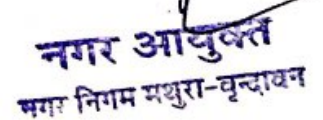 नगर आयुक्त
नगर निगम मथुरा-वृन्दावन